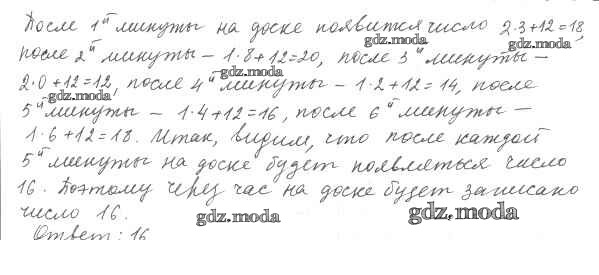 После 1й минуты на доске появится число 2·3+12=18,
gdz.moda
после 2й минуты – 1·8+12=20, после 3й минуты –
gdz.moda
gdz.moda
2·0+12=12, после 4й минуты – 1·2+12=14, после
gdz.moda
5й минуты – 1·4+12=16, после 6й минуты –
1·6+12=18. Итак, видим, что после каждой
5й минуты на доске будет появляться число
16. Поэтому через час на доске будет записано
число 16.
gdz.moda
gdz.moda
Ответ: 16